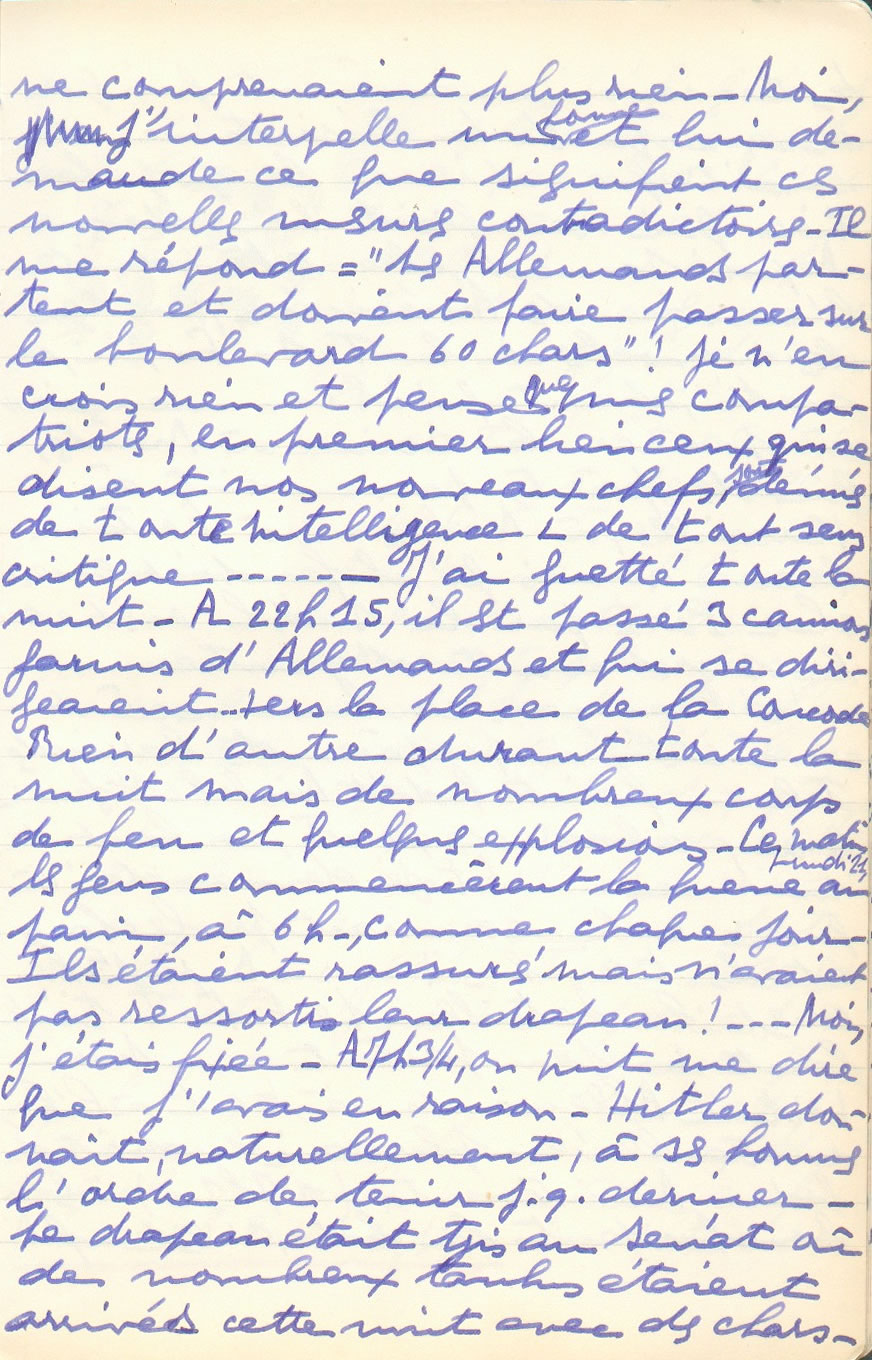 ne comprenaient plus rien - Moi,
j'interpelle un jeune et lui de-
mande ce que signifient ces
nouvelles mesures contradictoires - Il
me répond = "Les Allemands par-
tent et doivent faire passer sur
le boulevard 60 chars" ! Je n'en
crois rien et pense que mes compa-
triotes, en premier lieu ceux qui se
disent nos nouveaux chefs, sont dénués
de toute intelligence & de tout sens
critique ------ J'ai guetté toute la
nuit - A 22h15, il est passé 3 camions
garnis d'Allemands et qui se diri-
geaient vers la place de la Concorde
Rien d'autre durant toute la
nuit mais de nombreux coups
de feu et quelques explosions - Ce matin,
lundi 21,
les gens commencèrent la queue au
pain, à 6h -, comme chaque jour -
Ils étaient rassurés mais n'avaient
pas ressortis leur drapeau ! --- Moi,
j'étais fixée - A 7h3/4, on vint me dire
que j'avais eu raison - Hitler don-
nait, naturellement, à ses hommes
l'ordre de tenir j.q. dernier -
Le drapeau était tjrs au Sénat où
de nombreux tanks étaient
arrivés cette nuit avec des chars -